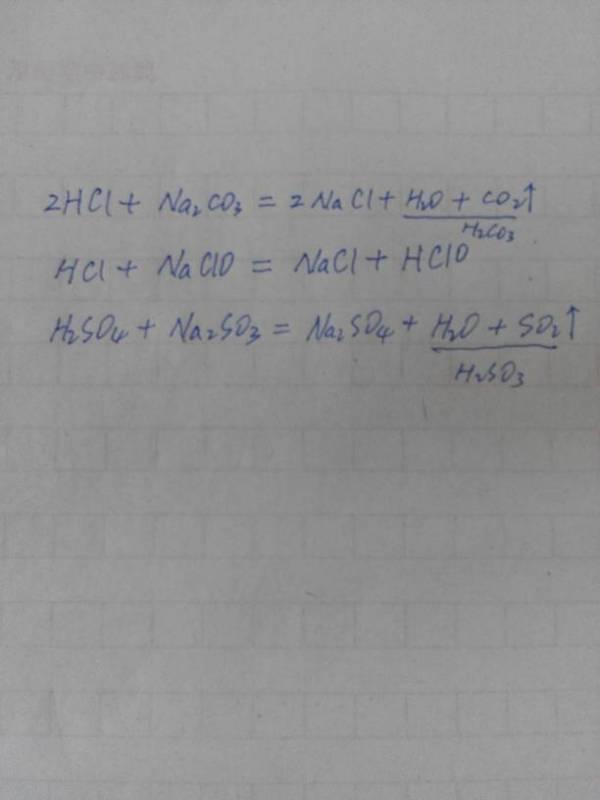 2HCl + Na₂CO₃ = 2NaCl + H₂O + CO₂↑
H₂CO₃
HCl + NaClO = NaCl + HClO
H₂SO₄ + Na₂SO₃ = Na₂SO₄ + H₂O + SO₂↑
H₂SO₃